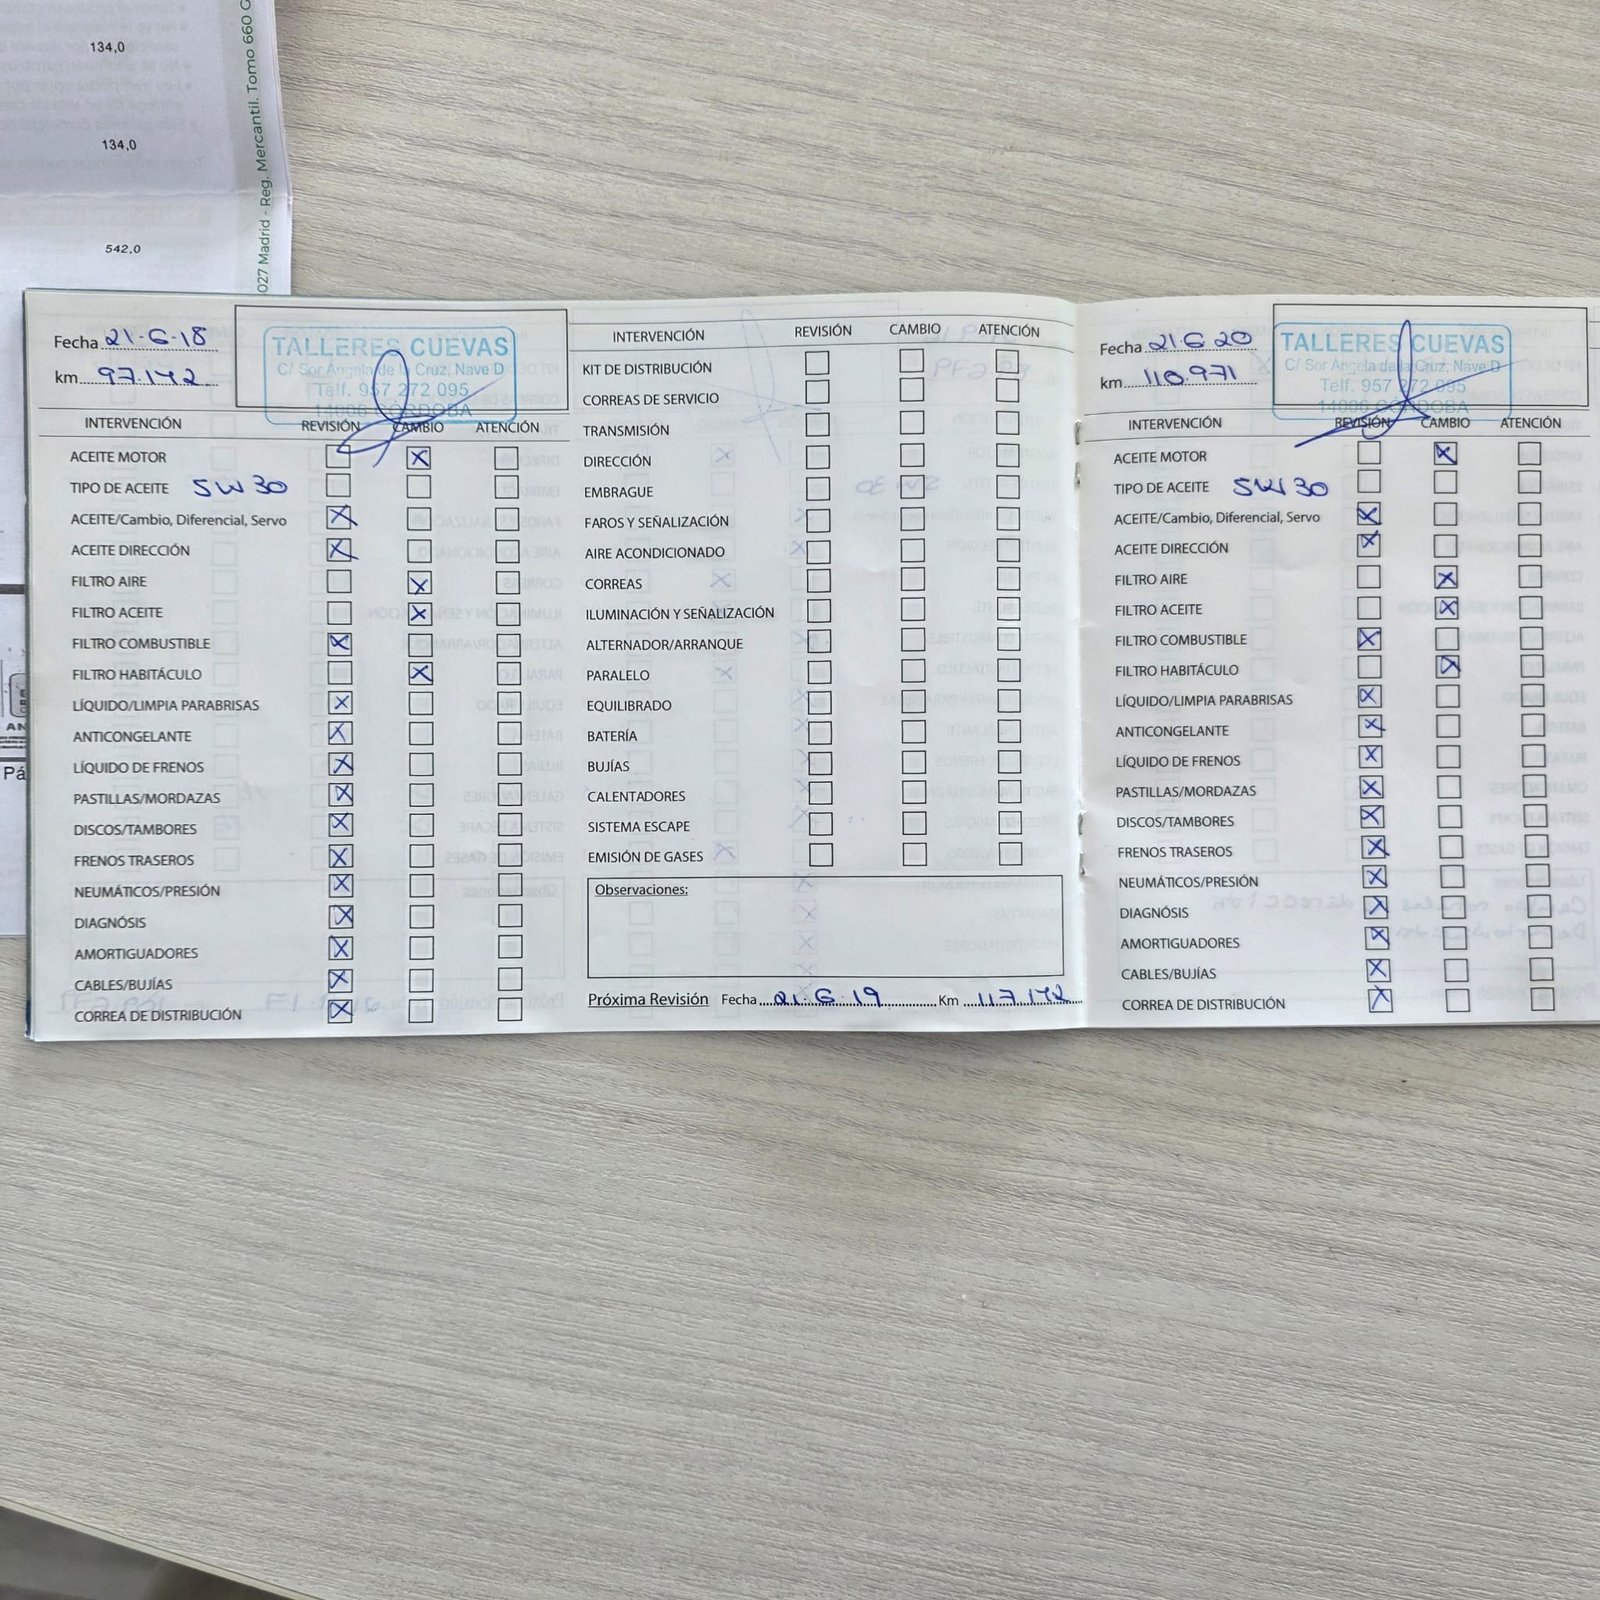 134,0
134,0
542,0
027 Madrid - Reg. Mercantil. Tomo 660 G
AN
Pá
Fecha 21-6-18
km 97.142
TALLERES CUEVAS
C/ Sor Ángela de la Cruz, Nave D
Telf. 957 272 095
14006 CÓRDOBA
INTERVENCIÓN REVISIÓN CAMBIO ATENCIÓN
ACEITE MOTOR X
TIPO DE ACEITE 5W30
ACEITE/Cambio, Diferencial, Servo X
ACEITE DIRECCIÓN X
FILTRO AIRE X
FILTRO ACEITE X
FILTRO COMBUSTIBLE X
FILTRO HABITÁCULO X
LÍQUIDO/LIMPIA PARABRISAS X
ANTICONGELANTE X
LÍQUIDO DE FRENOS X
PASTILLAS/MORDAZAS X
DISCOS/TAMBORES X
FRENOS TRASEROS X
NEUMÁTICOS/PRESIÓN X
DIAGNÓSIS X
AMORTIGUADORES X
CABLES/BUJÍAS X
CORREA DE DISTRIBUCIÓN X
INTERVENCIÓN REVISIÓN CAMBIO ATENCIÓN
KIT DE DISTRIBUCIÓN
CORREAS DE SERVICIO
TRANSMISIÓN
DIRECCIÓN
EMBRAGUE
FAROS Y SEÑALIZACIÓN
AIRE ACONDICIONADO
CORREAS
ILUMINACIÓN Y SEÑALIZACIÓN
ALTERNADOR/ARRANQUE
PARALELO
EQUILIBRADO
BATERÍA
BUJÍAS
CALENTADORES
SISTEMA ESCAPE
EMISIÓN DE GASES
Observaciones:
Próxima Revisión Fecha 21.6.19 Km 117.142
Fecha 21.6 20
km 110.971
TALLERES CUEVAS
C/ Sor Ángela de la Cruz, Nave D
Telf. 957 272 095
14006 CÓRDOBA
INTERVENCIÓN REVISIÓN CAMBIO ATENCIÓN
ACEITE MOTOR X
TIPO DE ACEITE 5W30
ACEITE/Cambio, Diferencial, Servo X
ACEITE DIRECCIÓN X
FILTRO AIRE X
FILTRO ACEITE X
FILTRO COMBUSTIBLE X
FILTRO HABITÁCULO X
LÍQUIDO/LIMPIA PARABRISAS X
ANTICONGELANTE X
LÍQUIDO DE FRENOS X
PASTILLAS/MORDAZAS X
DISCOS/TAMBORES X
FRENOS TRASEROS X
NEUMÁTICOS/PRESIÓN X
DIAGNÓSIS X
AMORTIGUADORES X
CABLES/BUJÍAS X
CORREA DE DISTRIBUCIÓN X